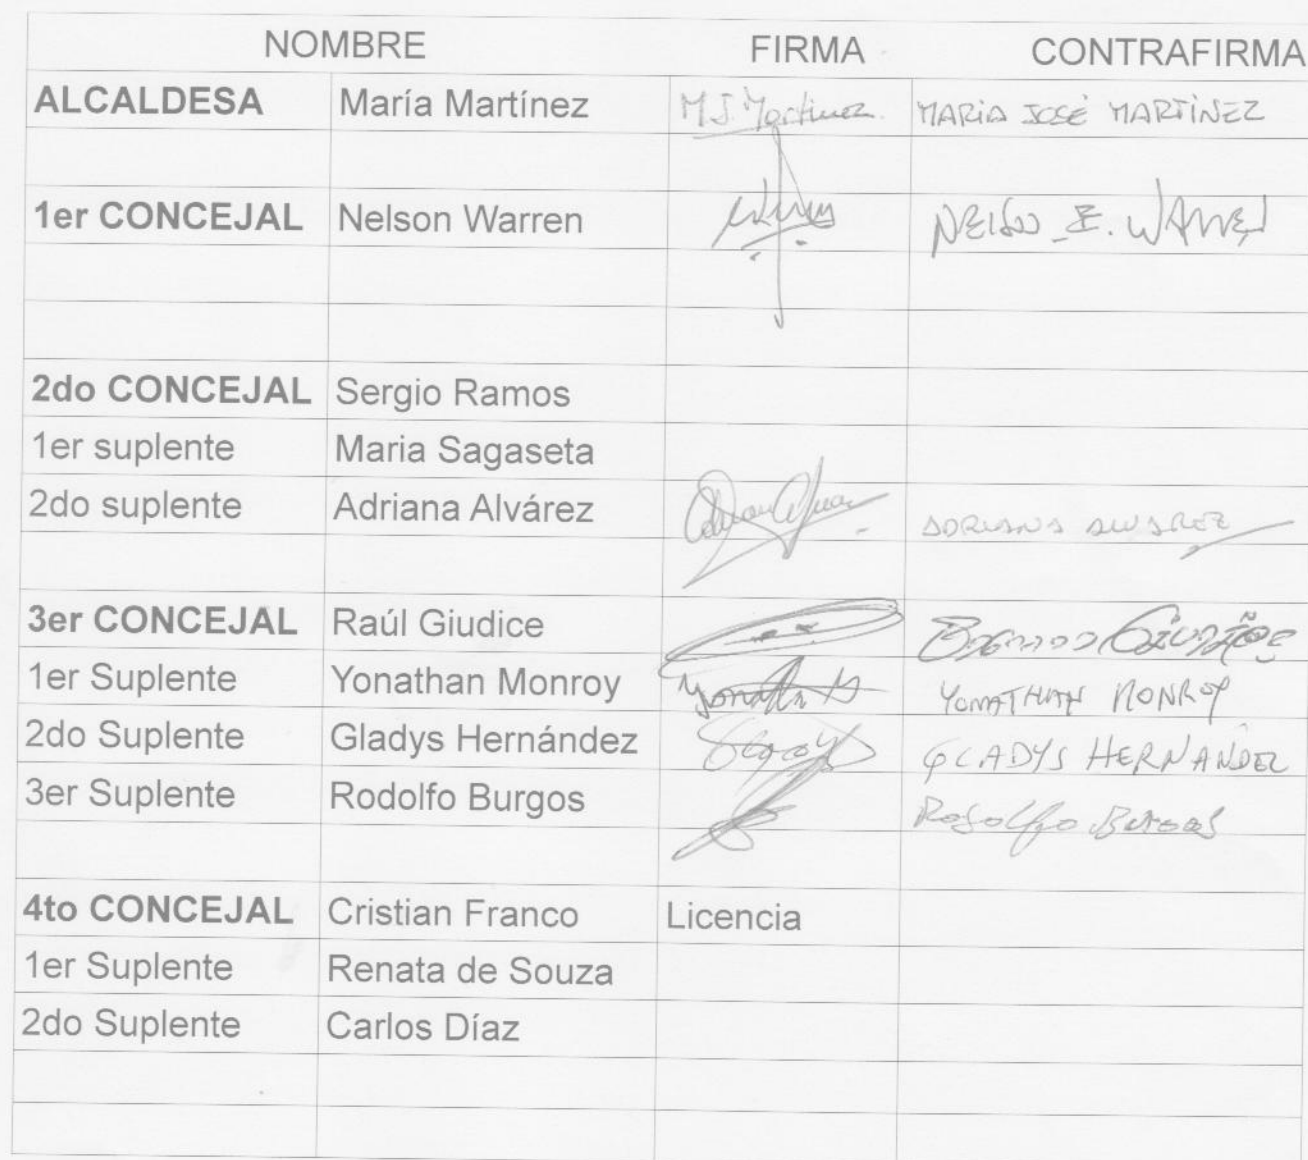 NOMBRE FIRMA CONTRAFIRMA
ALCALDESA María Martínez M J Martinez. MARIA JOSÉ MARTÍNEZ
1er CONCEJAL Nelson Warren NELSON E. WARREN
2do CONCEJAL Sergio Ramos
1er suplente Maria Sagaseta
2do suplente Adriana Alvárez ADRIANA ALVAREZ
3er CONCEJAL Raúl Giudice
1er Suplente Yonathan Monroy YONATHAN MONROY
2do Suplente Gladys Hernández GLADYS HERNANDEZ
3er Suplente Rodolfo Burgos Rodolfo Burgos
4to CONCEJAL Cristian Franco Licencia
1er Suplente Renata de Souza
2do Suplente Carlos Díaz